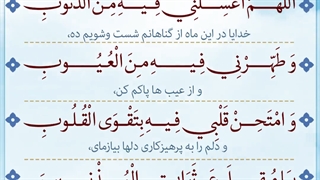 اللَّهُمَّ اغْسِلْنِي فِيهِ مِنَ الذُّنُوبِ
خدایا در این ماه از گناهانم شست وشویم ده،
وَ طَهِّرْنِي فِيهِ مِنَ الْعُيُوبِ
و از عیب ها پاکم کن،
وَ امْتَحِنْ قَلْبِي فِيهِ بِتَقْوَى الْقُلُوبِ
و دلم را به پرهیزکاری دلها بیازمای،